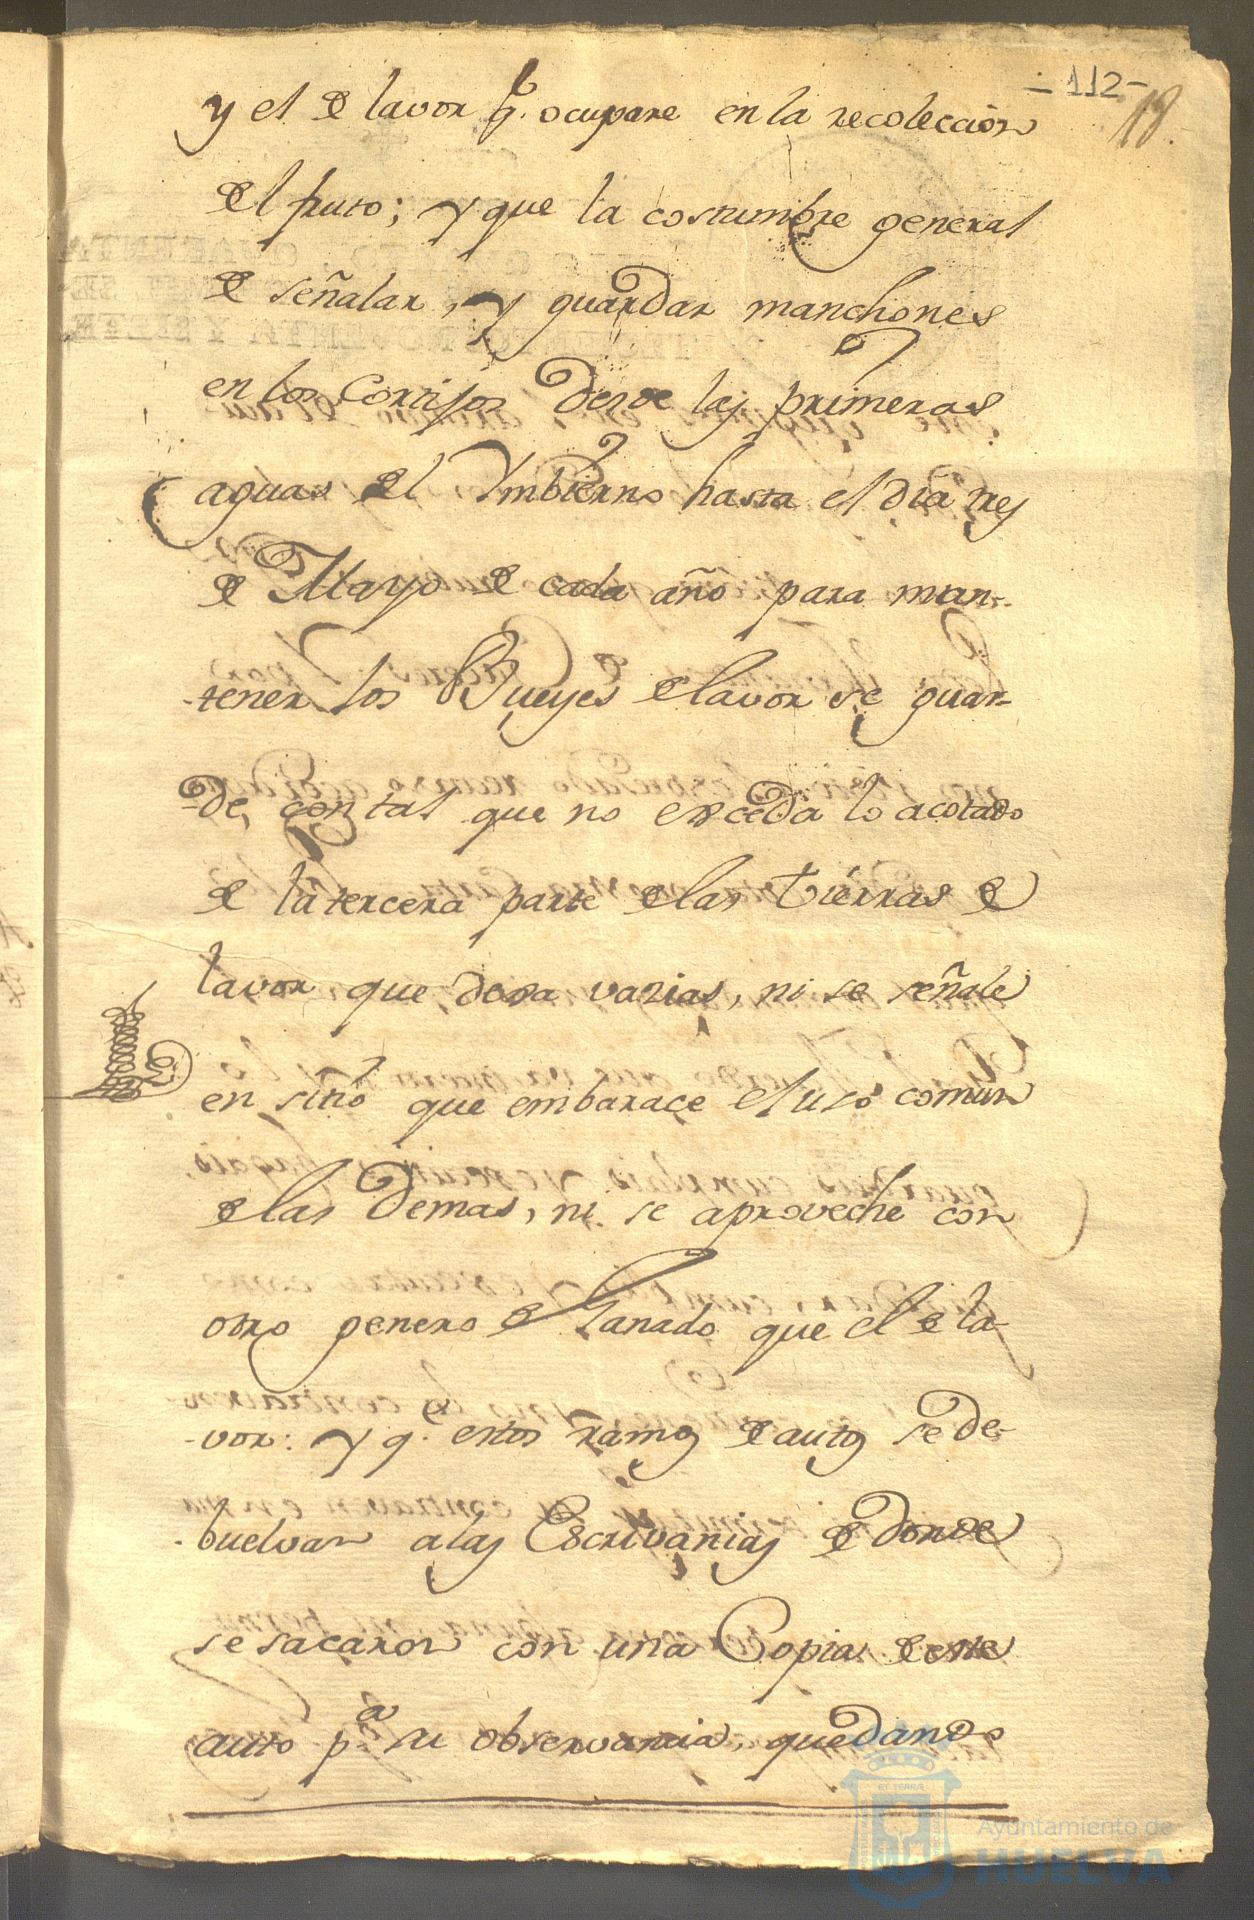 -112-
18.
y el de lavor q.e ocupare en la recoleccion
del fruto; y que la costumbre general
de señalar, y guardar manchones
en los Cortijos desde las primeras
aguas del Ymbierno hasta el dia tres
de Mayo de cada año para man-
tener los Bueyes de lavor se guar-
de, con tal que no exceda lo acotado
de la tercera parte de las tierras de
lavor que dexa vazias, ni se señale
en sitio que embarace el uso comun
de las demas, ni se aproveche con
otro genero de Ganado que el de la-
vor: y q.e estos ramos de autos se de-
buelvan a las Escrivanias de donde
se sacaron con una Copia de este
auto p.a su observancia, quedando
Ayuntamiento de
HUELVA